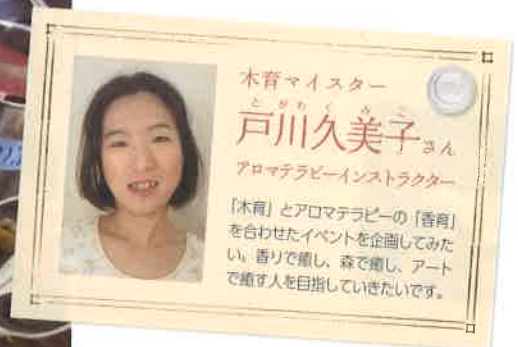 木育マイスター
とがわくみこ
戸川久美子さん
アロマテラピーインストラクター
「木育」とアロマテラピーの「香育」
を合わせたイベントを企画してみた
い。香りで癒し、森で癒し、アート
で癒す人を目指していきたいです。